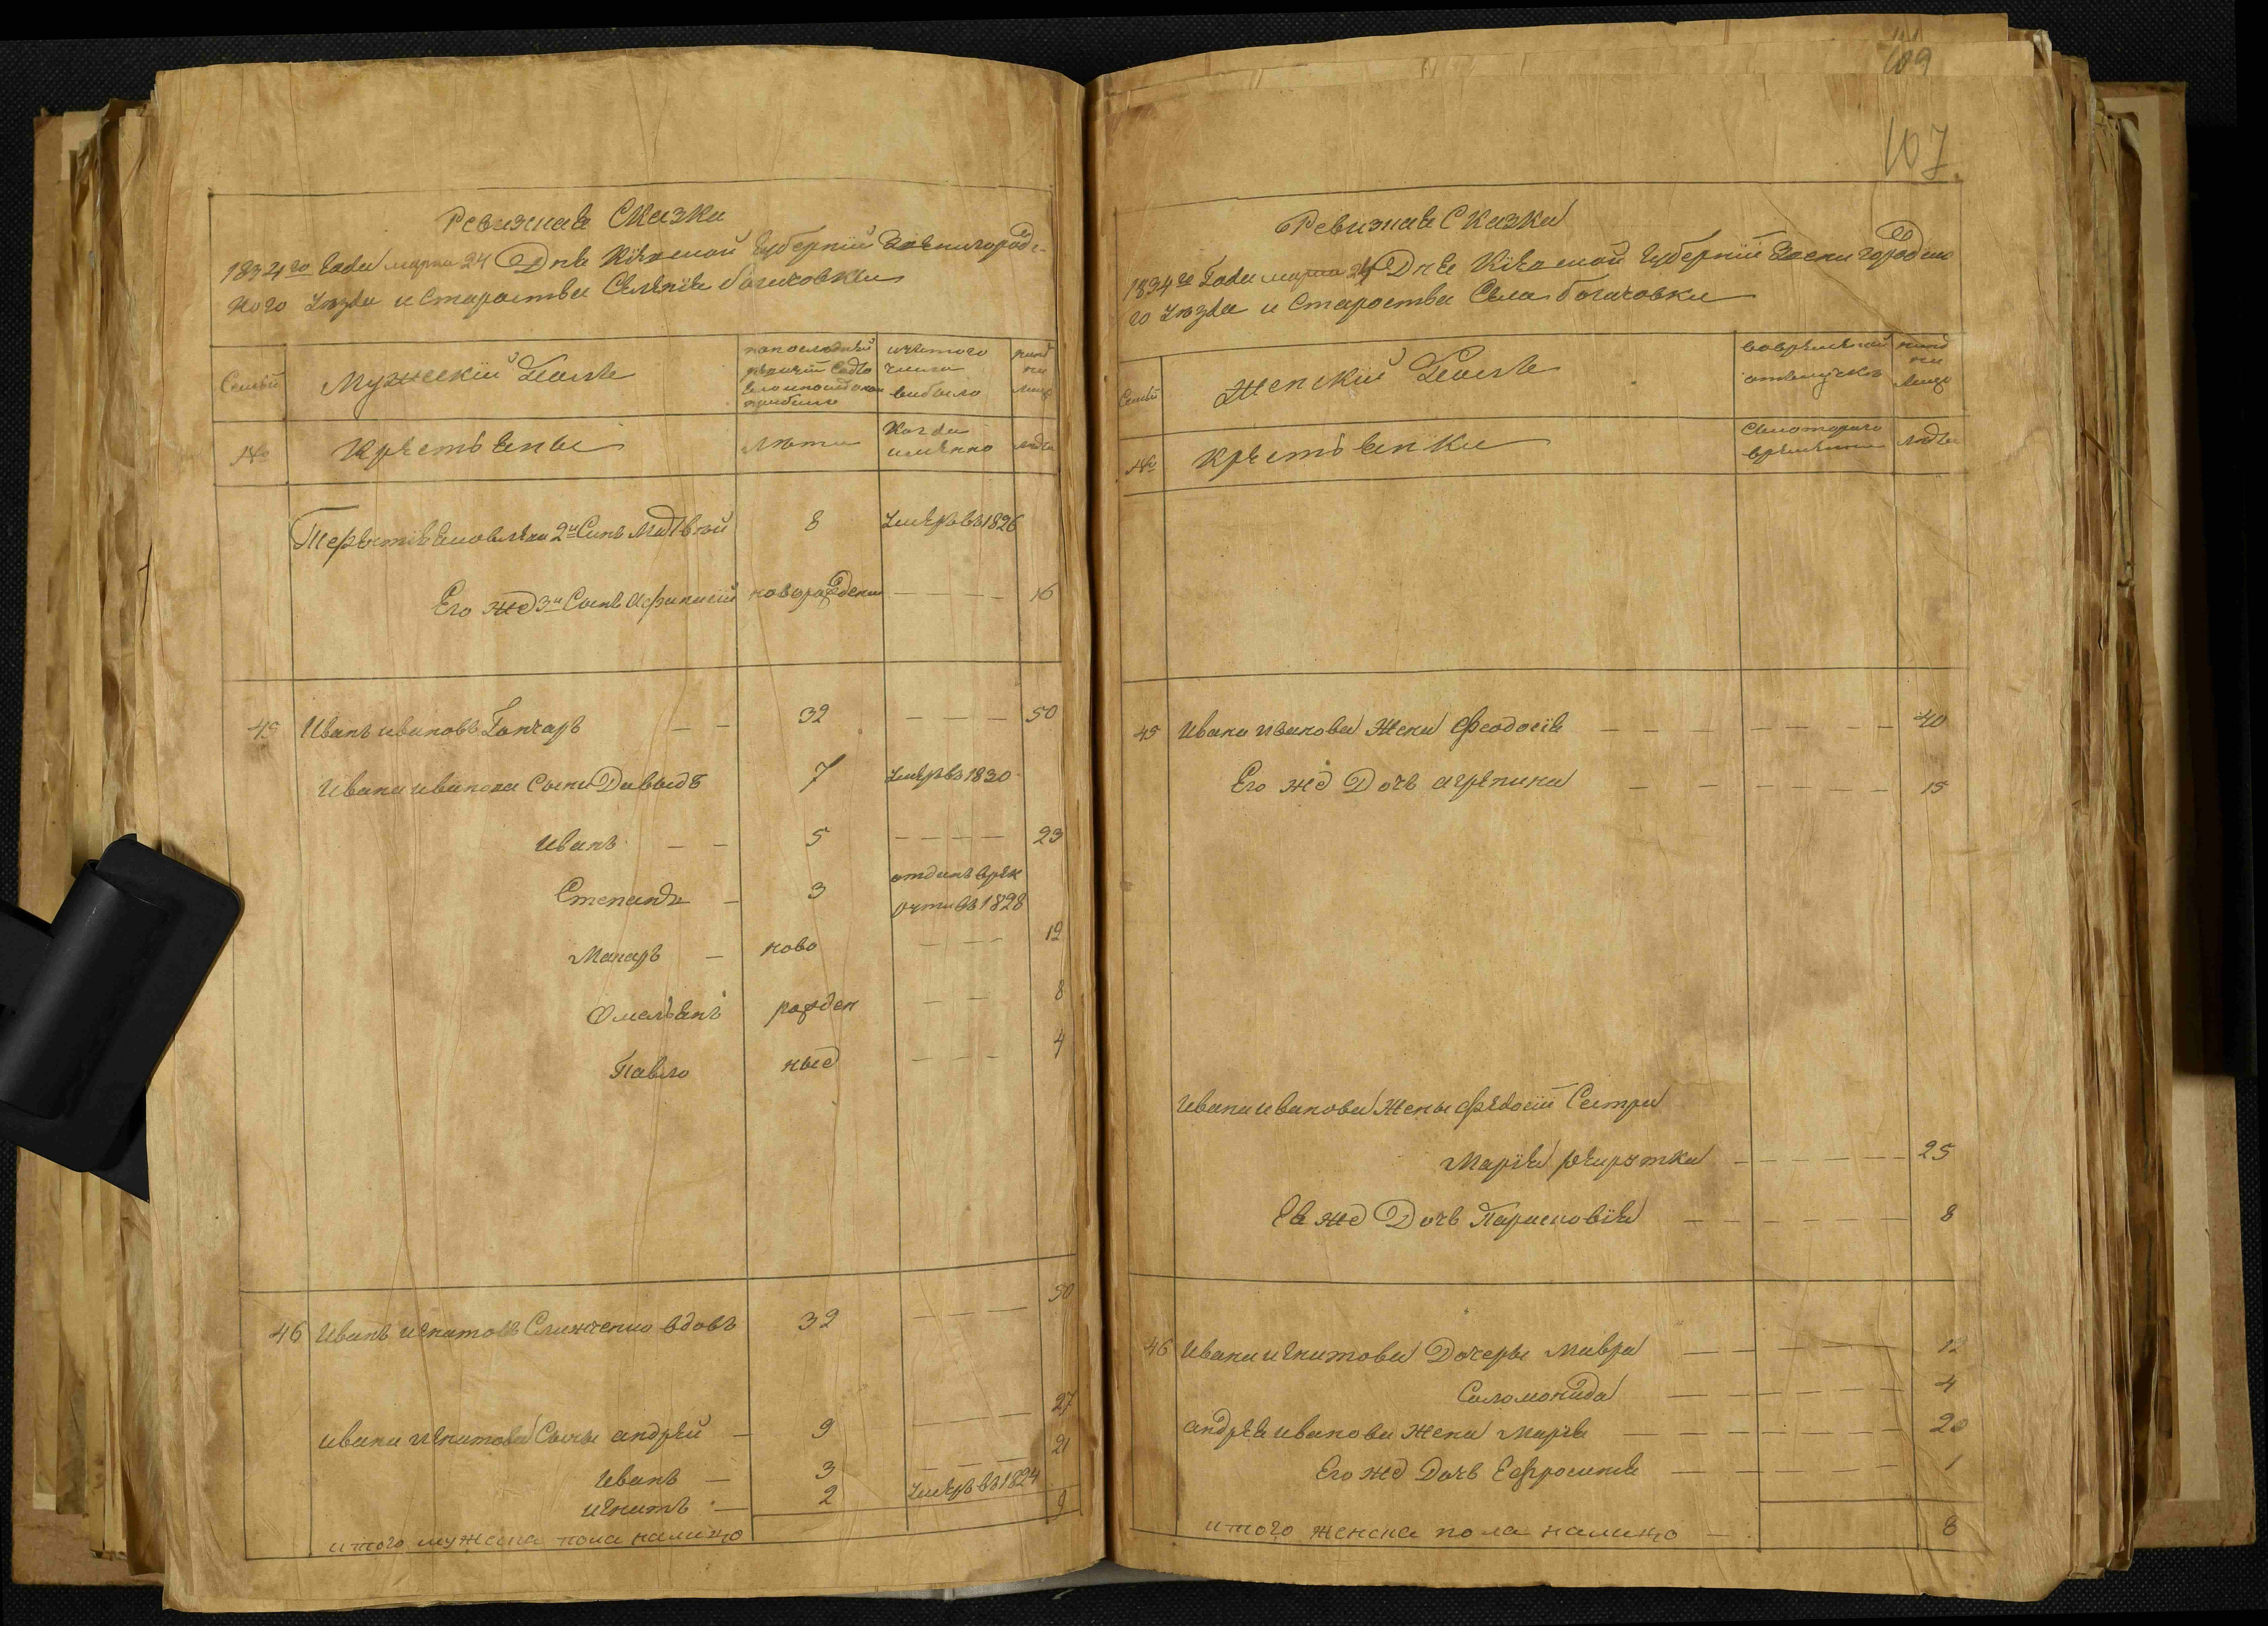 Ревизная Сказка
1834го Года марта 24 Дня Кіевской Губерніи Звенигородс-
кого Уѣзда и Староства Селенія Богачовки
Семьи
Мужескій Полъ
по последней
ревизіи Состо
яло и после оной
прибыло
и съ того
числа
выбыло
нынѣ
на
лице
№
Крестьяне
Лѣта
Когда
именно
лѣта
Терентія 2й Сынъ Матвѣй
8
Умеръ въ 1826
Его же 3й Сынъ Афанасій
новорожденъ
— — — —
16
45
Иванъ Ивановъ Гончаръ — —
32
— — — —
50
Ивана Иванова Сыны Давыдъ
7
Умеръ въ 1830
Иванъ — —
5
— — — —
23
Степанъ —
3
отданъ врек
руты въ 1828
Макаръ —
ново
— — —
12
Омельянъ
рожден
— —
8
Павло
ные
— — —
4
46
Иванъ Игнатовъ вдовъ
32
— — —
50
Ивана Игнатова Сыны Андрей —
9
— — —
27
Иванъ —
3
— — —
21
Игнатъ —
2
Умеръ въ 1824
итого мужеска пола налицо
9
109
107.
Ревизная Сказка
1834го Года марта 24 Дня Кіевской Губерніи Звенигородско
го Уѣзда и Староства Села Богачовки
Семьи
Женскій Полъ
во временной
отлучкѣ
нынѣ
на
лице
№
Крестьянки
Скотораго
времени
лѣта
45
Ивана Иванова Жена Феодосія — — — — — — —
40
Его же Дочь Агрепина — — — — — —
15
Ивана Иванова Жены Феодосіи Сестра
Марія рекрутка — — — — —
25
Ея же Дочь Парасковія — — — — — —
8
46
Ивана Игнатова Дочери Мавра — — — — — —
12
Соломонида — — — — — —
4
Андрея Иванова Жена Марія — — — — — — —
20
Его же Дочь Ефросинія — — — — — —
1
итого женска пола налицо —
8